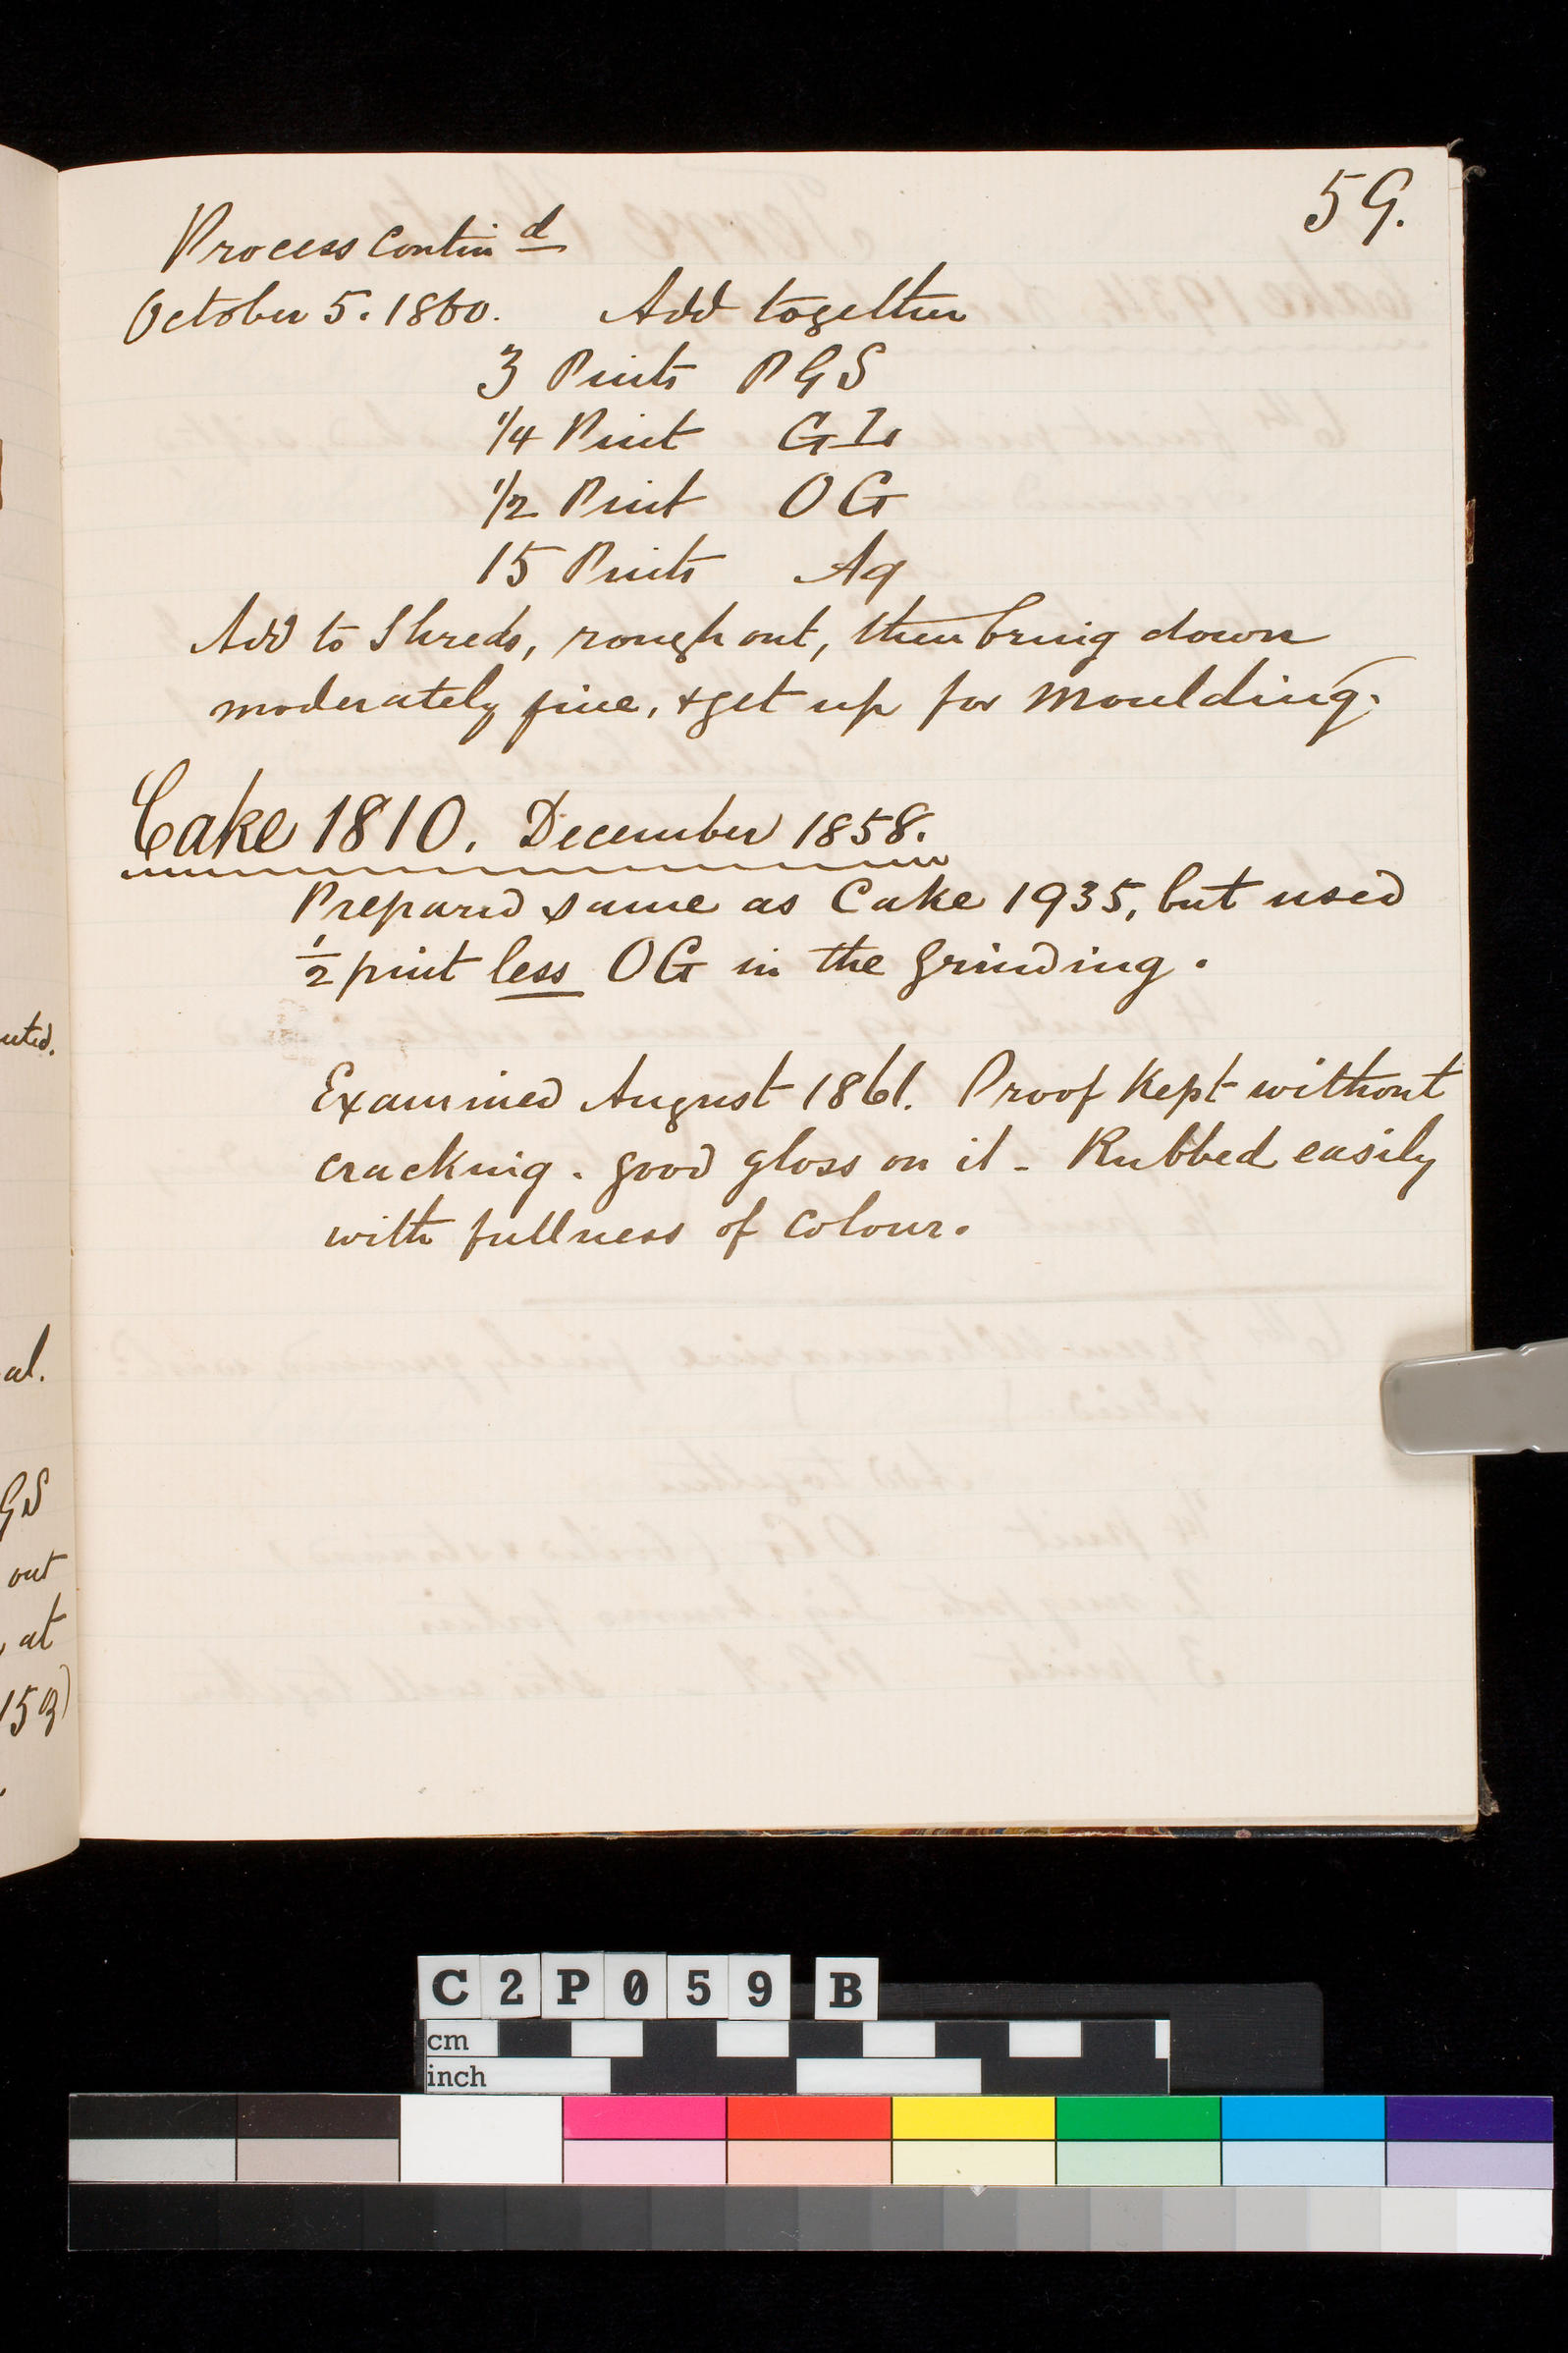 59.
Process Contin d
October 5. 1860. Add together
3 Pints P G S
1/4 Pint
1/2 Pint O G
15 Pints Aq
Add to Shreds, rough out, then bring down
moderately fine, + get up for Moulding.
Cake 1810. December 1858.
Prepared same as Cake 1935, but used
1/2 pint less OG in the Grinding.
Examined August 1861. Proof Kept without
cracking. good gloss on it - Rubbed easily
with fullness of Colour.
uted.
al.
GS
out
, at
C2P059 B
cm
inch